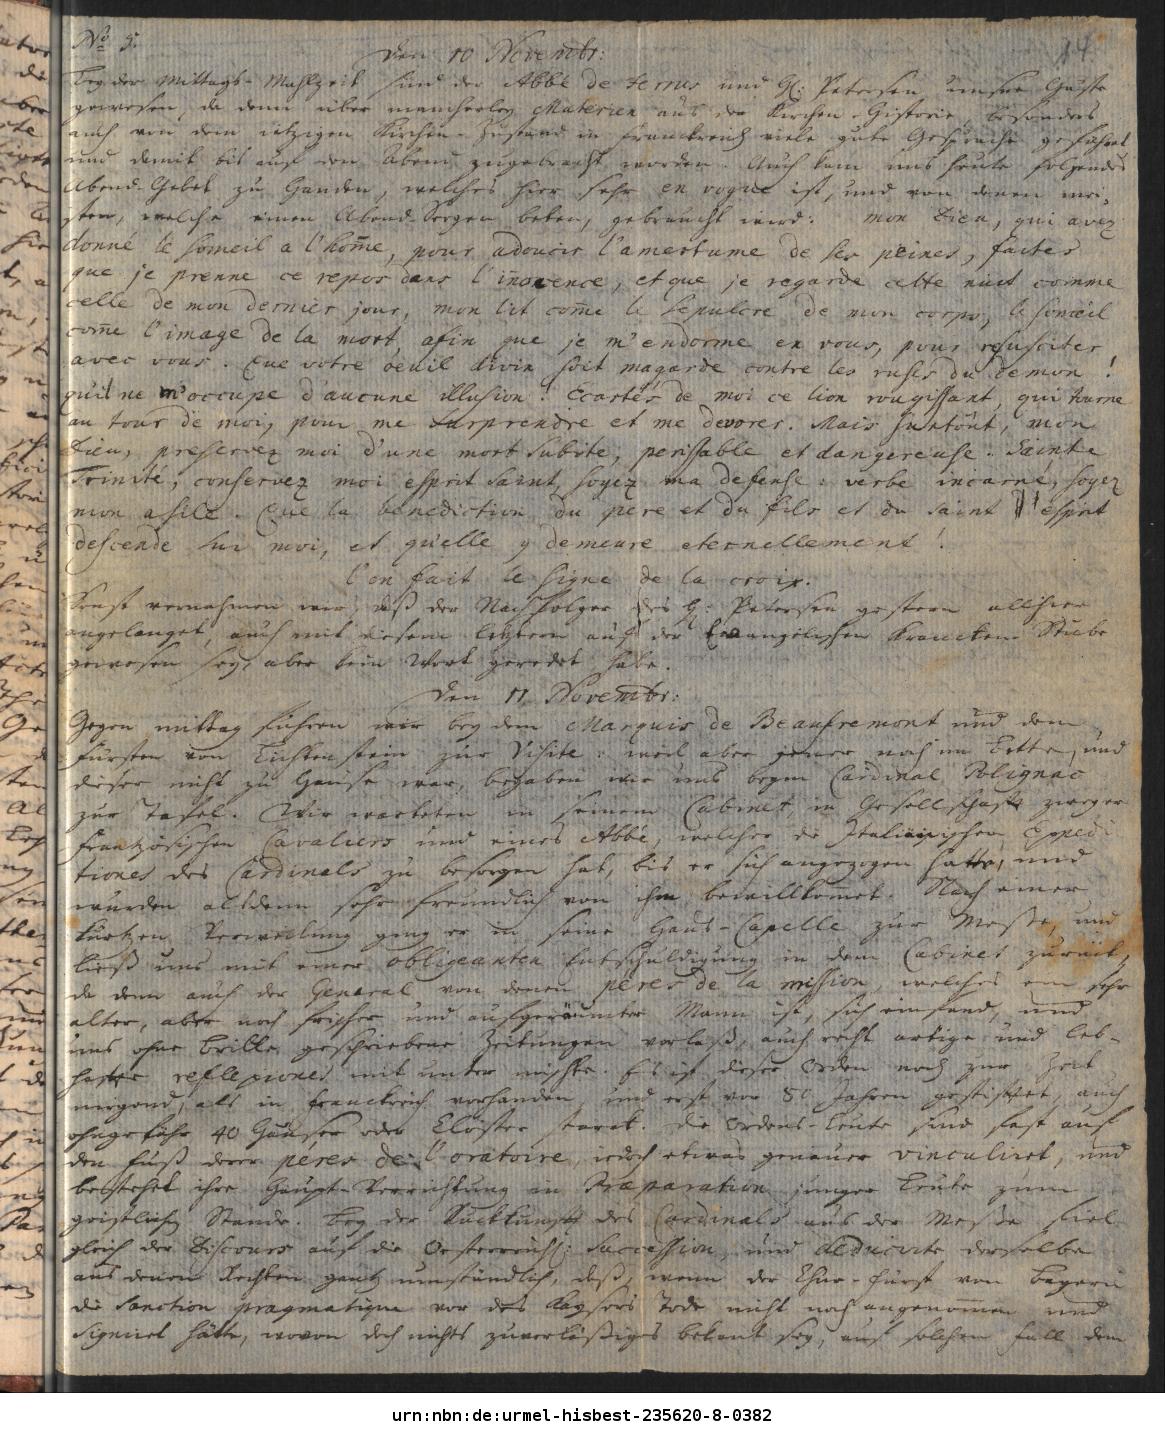 No 9.
14.
den 10 Novembr:
Bey der Mittags-Mahlzeit sind der Abbé de Ternus und H. Petersen unsere Gäste
gewesen, da denn über mancherley Materien aus der Kirchen-Historie, besonders
auch von dem itzigen Kirchen-Zustand in Franckreich viele gute Gespräche geführet
und damit bis auf den Abend zugebracht worden. Auch kam uns heute folgendes
Abend-Gebet zu Handen, welches hier sehr en vogue ist, und von denen mei-
sten, welche einen Abend-Seegen beten, gebraucht wird: mon Dieu, qui avez
donné le someil a l'hom̄e, pour adoucir l'amertume de ses peines, faites
que je prenne ce repos dans l'inōcence, et que je regarde cette nuit comme
celle de mon dernier jour, mon lit com̄e le sepulcre de mon corps, le som̄eil
com̄e l'image de la mort, afin que je m'endorme en vous, pour resusciter
avec vous. Que votre oeuil divin soit magarde contre les ruses du demon!
qu'il ne m'occupe d'aucune illusion! Ecartés de moi ce lion rougissant, qui tourne
au tour de moi, pour me surprendre et me devorer. Mais surtôut, mon
Dieu, preservez moi d'une mort subite, perissable et dangereuse. Sainte
Trinité, conservez moi esprit saint, soyez ma defense: verbe incarné, soyez
mon asile. Que la benediction du pere et du fils et du saint l'esprit
descende sur moi, et qu'elle y demeure eternellement!
l'on fait le signe de la croix.
Sonst vernahmen wir, daß der Nachfolger des H. Petersen gestern allhier
angelanget, auch mit diesem letztern auf der Evangelischen Krancken-Stube
gewesen sey, aber kein Wort geredet habe.
den 11 Novembr:
Gegen mittag fuhren wir bey dem Marquis de Beaufremont und dem
Fürsten von Lichtenstein zur Visite: weil aber jener noch im Bette, und
dieser nicht zu Hause war, begaben wir uns beym Cardinal Polignac
zur Tafel. Wir warteten in seinem Cabinet, in Gesellschaft zweyer
französischen Cavaliers und eines Abbé, welcher die Italiänischen Expedi-
tiones des Cardinals zu besorgen hat, bis er sich angezogen hatte, und
wurden alsdenn sehr freundlich von ihm bewillkom̄et. Nach einer
kurtzen Verweilung ging er in seine Haus-Capelle zur Messe, und
ließ uns mit einer obligeanten Entschuldigung in dem Cabinet zurück,
da denn auch der General von denen peres de la mission, welches ein sehr
alter, aber noch frischer und aufgeräumter Mann ist, sich einfand, und
uns ohne Brille geschriebene Zeitungen vorlaß, auch recht artige und leb-
hafte reflexiones mit unter mischte. Es ist dieser Orden noch zur Zeit
nirgend, als in Franckreich vorhanden, und erst vor 80 Jahren gestiftet, auch
ohngefähr 40 Häuser oder Clöster starck. Die Ordens-Leute sind fast auf
den Fuß derer peres de l'oratoire, jedoch etwas genauer vinculiret, und
bestehet ihre Haupt-Verrichtung in Præparation junger Leute zum
geistlichen Stande. Bey der Rückkunft des Cardinals aus der Messe fiel
gleich der Discours auf die Oesterreichs: Succession, und deducirte derselbe
aus denen Rechten gantz umständlich, daß, wenn der Chur-Fürst von Bayern
die Sanction pragmatique vor des Kaysers Tode nicht noch angenom̄en und
signiret hätte, wovon doch nichts zuverläßiges bekant sey, auf solchen Fall dem
urn:nbn:de:urmel-hisbest-235620-8-0382